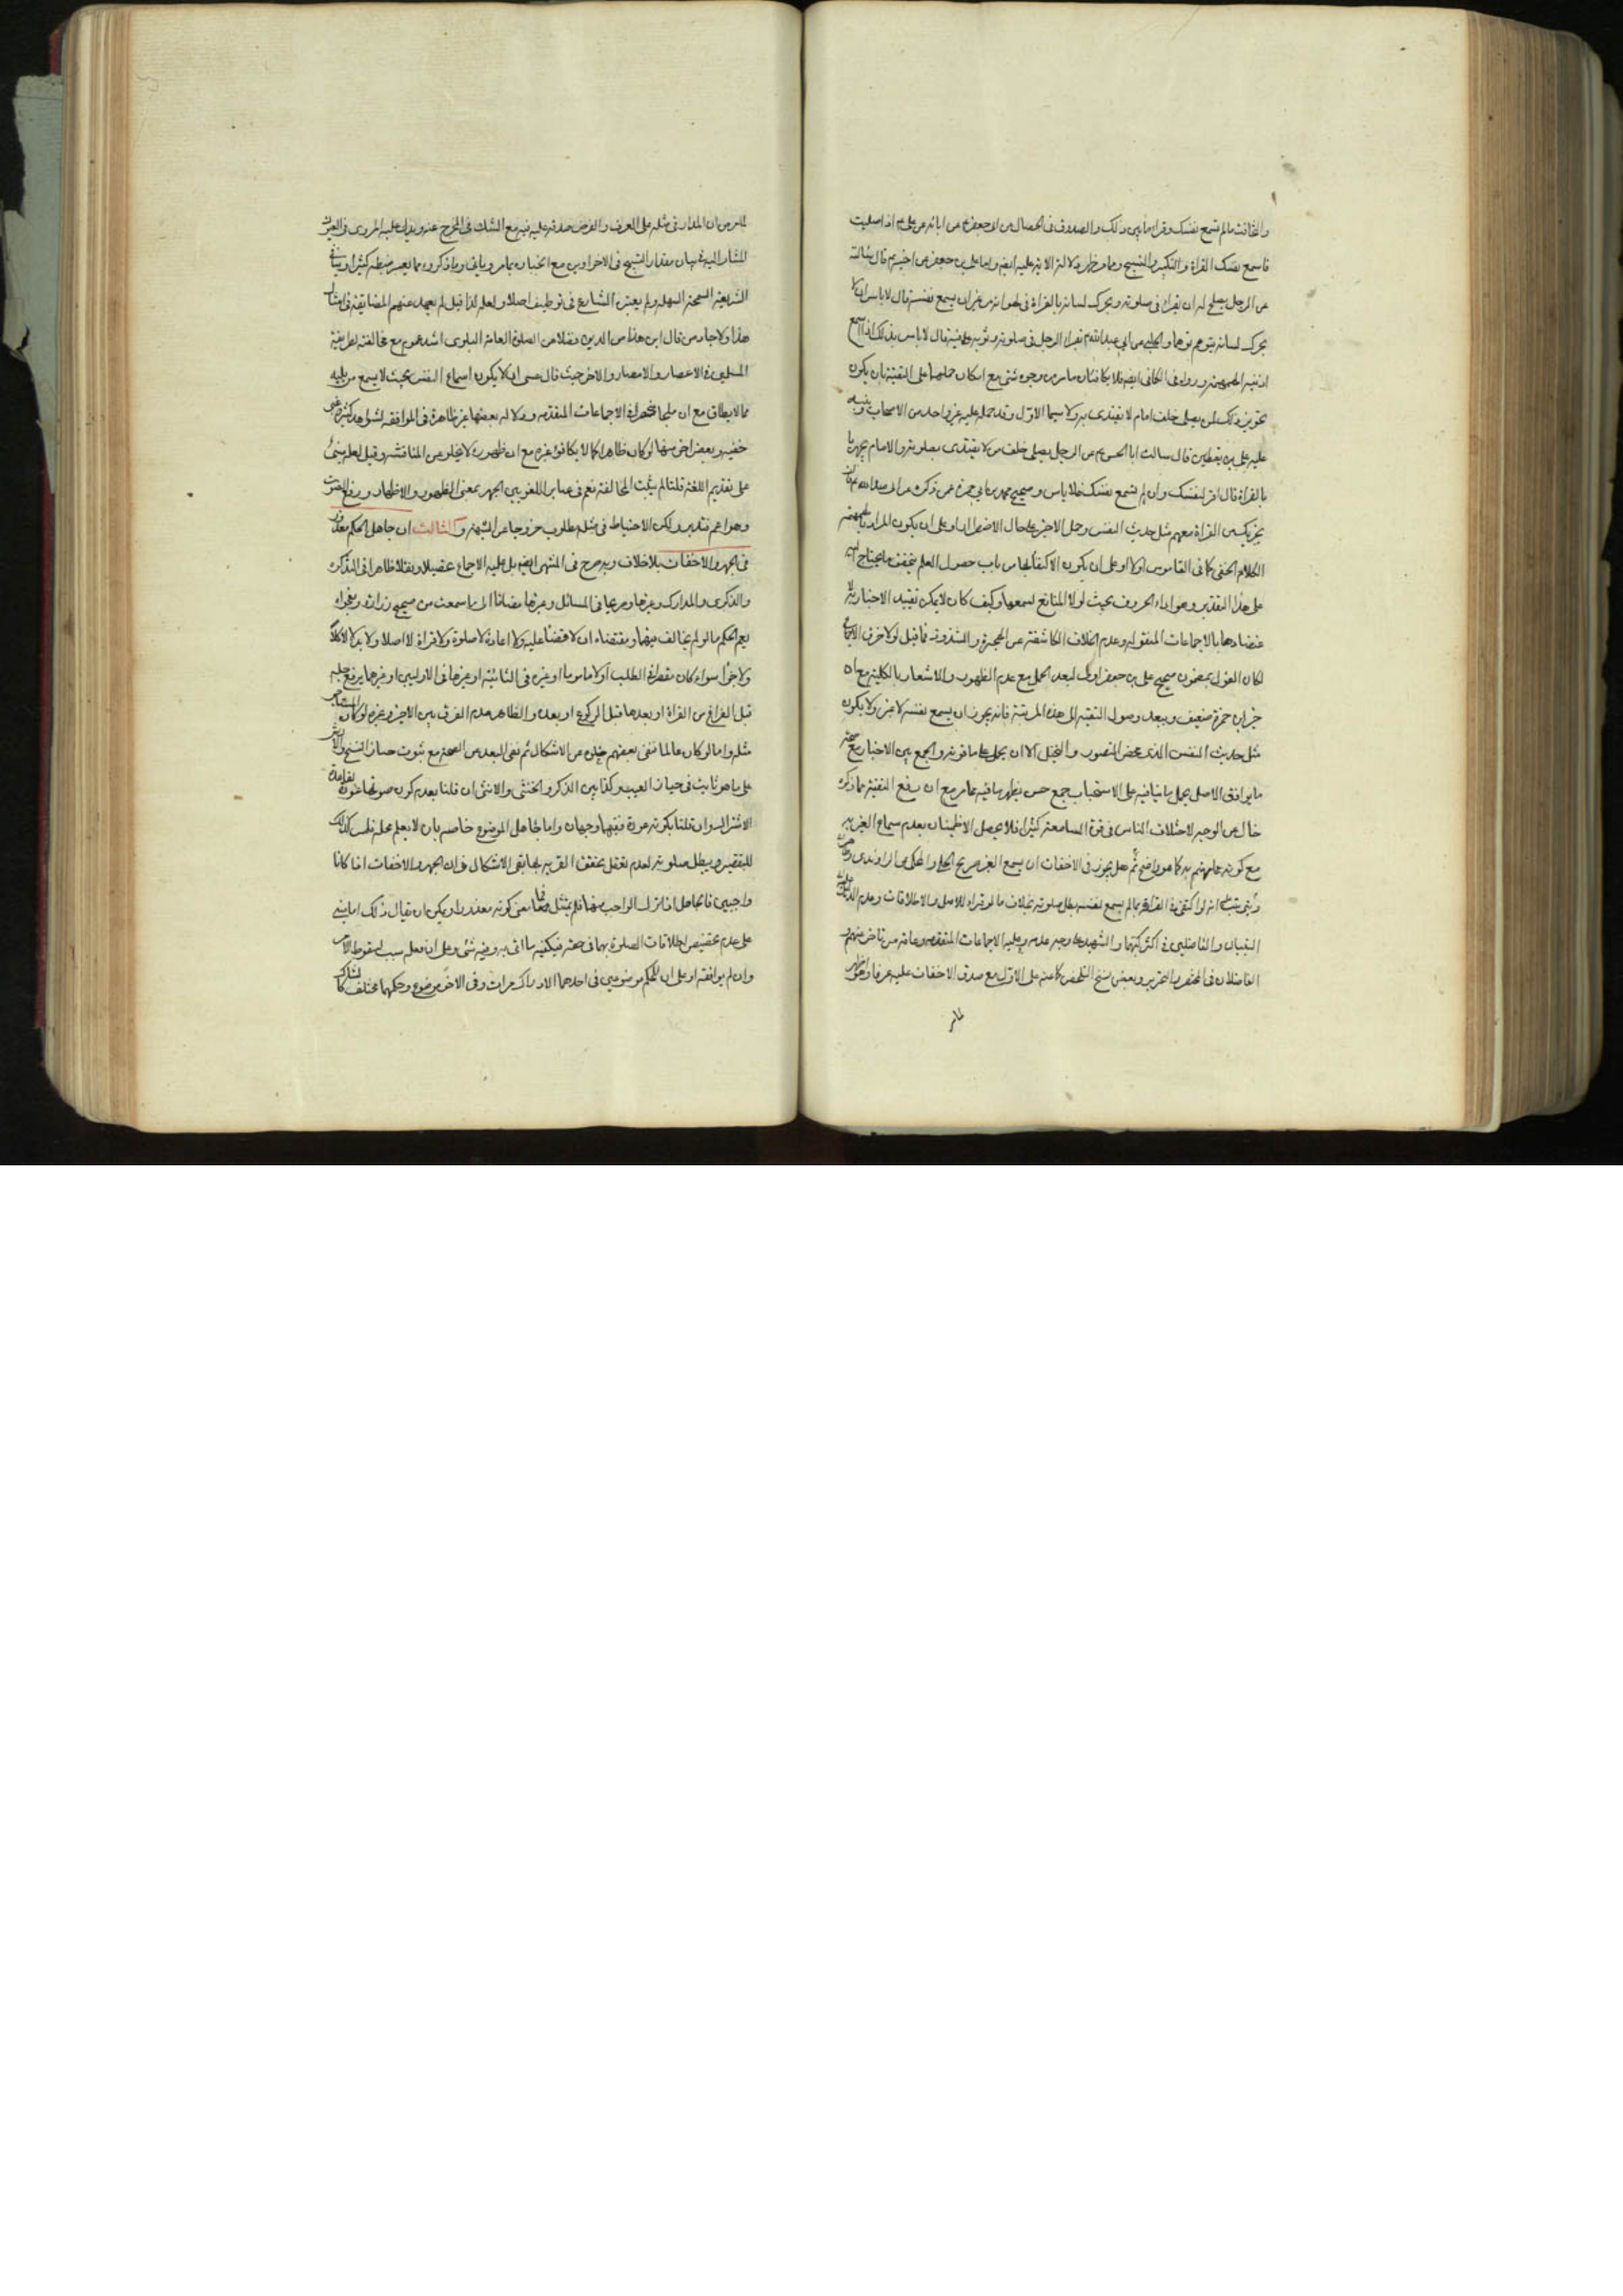 والمخافت مالم تسمع نفسك وقراءة ما بين ذلك والصدوق فى الخصال عن ابى جعفر عن ابائه عن على اذا صليت
فاسمع نفسك القراءة والتكبير والتسبيح ومما مر ظهر دلالة الاية عليه ايضا واما على بن جعفر عن اخيه قال سالته
عن الرجل يصلح له ان يقراء فى صلوته ويحرك لسانه بالقراءة فى لهواته من غير ان يسمع نفسه قال لا باس ان لا
يحرك لسانه يتوهم توهما والحلبى عن ابى عبد الله هل يقراء الرجل فى صلوته وثوبه على فيه قال لا باس بذلك اذا اسمع
اذنيه الهمهمة ورواه فى الكافى ايضا فلا يكافئان مامر من وجوه شتى مع امكان حملهما على التقية بان يكون
تجويز ذلك لمن يصلى خلف امام لا يقتدى به ولا سيما الاول وقد حمله عليه غير واحد من الاصحاب
على بن يقطين قال سالت ابا الحسن عن الرجل يصلى خلف من لا يقتدى بصلوته والامام يجهر
بالقراءة قال اقرا لنفسك وان لم تسمع نفسك فلا باس وصحيح محمد بن ابى حمزة عمن ذكره عن ابى عبد الله قال
يجزيك من القراءة معهم مثل حديث النفس وحمل الاخير على حال الاضطرار او على ان يكون المراد بالهمهمة
الكلام الخفى كما فى القاموس او على ان يكون الاكتفاء بها من باب حصول العلم
على هذا التقدير وهو اداء الحروف بحيث لولا المانع لسمعها وكيف كان لا يمكن تقييد الاخبار
بالاجماعات المنقولة وعدم الخلاف الكاشفة عن الحجة والشذوذ فما قيل لولا خرق الاجماع
لكان القول بمضمون صحيح على بن جعفر اولى لبعد الحمل مع عدم الظهور والاشعار بالكلية مع ان
خبر ابن حمزة ضعيف ويبعد وصول التقية الى هذه المرتبة فانه يجوز ان يسمع نفسه لا غير ولا يكون
مثل حديث النفس الذى محض التصور والتخيل الا ان يحمل على ما قويته والجمع بين الاخبار مع صحة
ما يوافق الاصل بحمل ما ينافيه على الاستحباب جمع حسن يظهر ما فيه مما مر مع ان دفع التقية بما ذكره
خال عن الوجه لاختلاف الناس فى قوة السامعة كثيرا فلا يحصل الاطمينان بعدم سماع الغير به
مع كونه كما هو واضح ثم هل يجوز فى الاخفات ان يسمع الغير صريح الحلى والمحكى عن الراوندى
انه لو اكتفى فى القراءة بما لم يسمع نفسه بطل صلوته بخلاف ما لو قراء للاصل والاطلاقات وعدم الدليل
التبيان والفاضلين فى اكثر كتبهما والشهيد على وجه عدمه وعليه الاجماعات المتقدمة وعامة من تاخر عنهم
الفاضلان فى المختصر والتحرير وبعض نسخ التلخيص كاعنه على الاول مع صدق الاخفات عليه عرفا
لمامر
لمامر من ان المدار فى مثله على العرف والفرض صدقه عليه فيه مع الشك فى الخرج عنه ويدل عليه المروى فى العيون
المشار اليه فى بيان مقدار التسبيح فى الاخراوين مع اعتباره بما مر وياتى وما ذكروه مما يعسر ضبطه كثيرا
الشريعة السمحة السهلة ولم يعتبر الشارع فى توظيف اصلا ولعله لذا قيل لم يعهد عنهم المضايقة فى امثال
هذا ولا جاء من قال ان هذا من الدين فضلا من الصلوة العامة البلوى اشد عموم مع مخالفته لطريقة
المسلمين فى الاعصار والامصار والاخر حيث قال عسى ان لا يكون اسماع النفس بحيث لا يسمع من يليه
مما لا يطاق مع ان الاجماعات المتقدمة ودلالة بعضها غير ظاهرة فى الموافقة لشواهد كثيرة غير
خفية وبعض اخر منها لو كان ظاهرا كمالا يكافؤ غيره مع ان ظهوره لا يخلو عن المناقشة وقيل لعله مبنى
على تقديم اللغة قلنا لم يثبت المخالفة نعم فى عباير اللغويين الجهر بمعنى الظهور والاظهار ورفع الصوت
وهو اعم فتدبر ولكن الاحتياط فى مثله مطلوب خروجا عن الشبهة والثالث ان جاهل الحكم معذور
فى الجهر والاخفات بلا خلاف وبه صرح فى المنتهى ايضا بل عليه الاجماع تحصيلا ونقلا ظاهرا فى التذكرة
والذكرى والمدارك وغيرها وصريحا فى المسائل وغيرها مضافا الى ما سمعت من صحيح زرارة وبفحواه
يعم الحكم ما لو لم يخالف فيهما ومقتضاه ان لا قضاء عليه ولا اعادة لا صلوة ولا قراءة لا اصلا ولا بدلا لا كلا
ولا جزا سواء كان مقصرا فى الطلب او لا ماموما او غيره فى الثنائية او غيرها فى الاوليين او غيرهما يرفع جهله
قبل الفراغ من القراءة او بعدها قبل الركوع او بعده والظاهر عدم الفرق بين الاجير وغيره لو كان المستاجر
مثله واما لو كان عالما فنفى بعضهم خلوه عن الاشكال ثم نفى البعد عن الصحة مع ثبوت خيار الفسخ
على ما هو ثابت فى خيار العيب وكذا بين الذكر والخنثى والانثى ان قلنا بعدم كون صوتها عورة
الاشتراك وان قلنا بكونه عورة ففيها وجهان واما جاهل الموضوع خاصة بان لا يعلم محله فليس كذلك
للتقصير ويبطل صلوته لعدم تعقل تحقق القربة بها بقى الاشكال فى ان الجهر والاخفات اذا كانا
واجبين فالجاهل اذا ترك الواجب منهما فلم يمتثل فما معنى كونه معذورا ويمكن ان يقال ذلك اما مبنى
على عدم تخصيص اطلاقات الصلوة بهما فى حقه فيكفيه ما اتى به وفيه شئى وعلى ان فعله سبب لسقوط الامر
وان لم يوافقه او على ان للحكم موضوعين فى احدهما الادراك مرات وفى الاخر موضوع وحكمهما مختلف